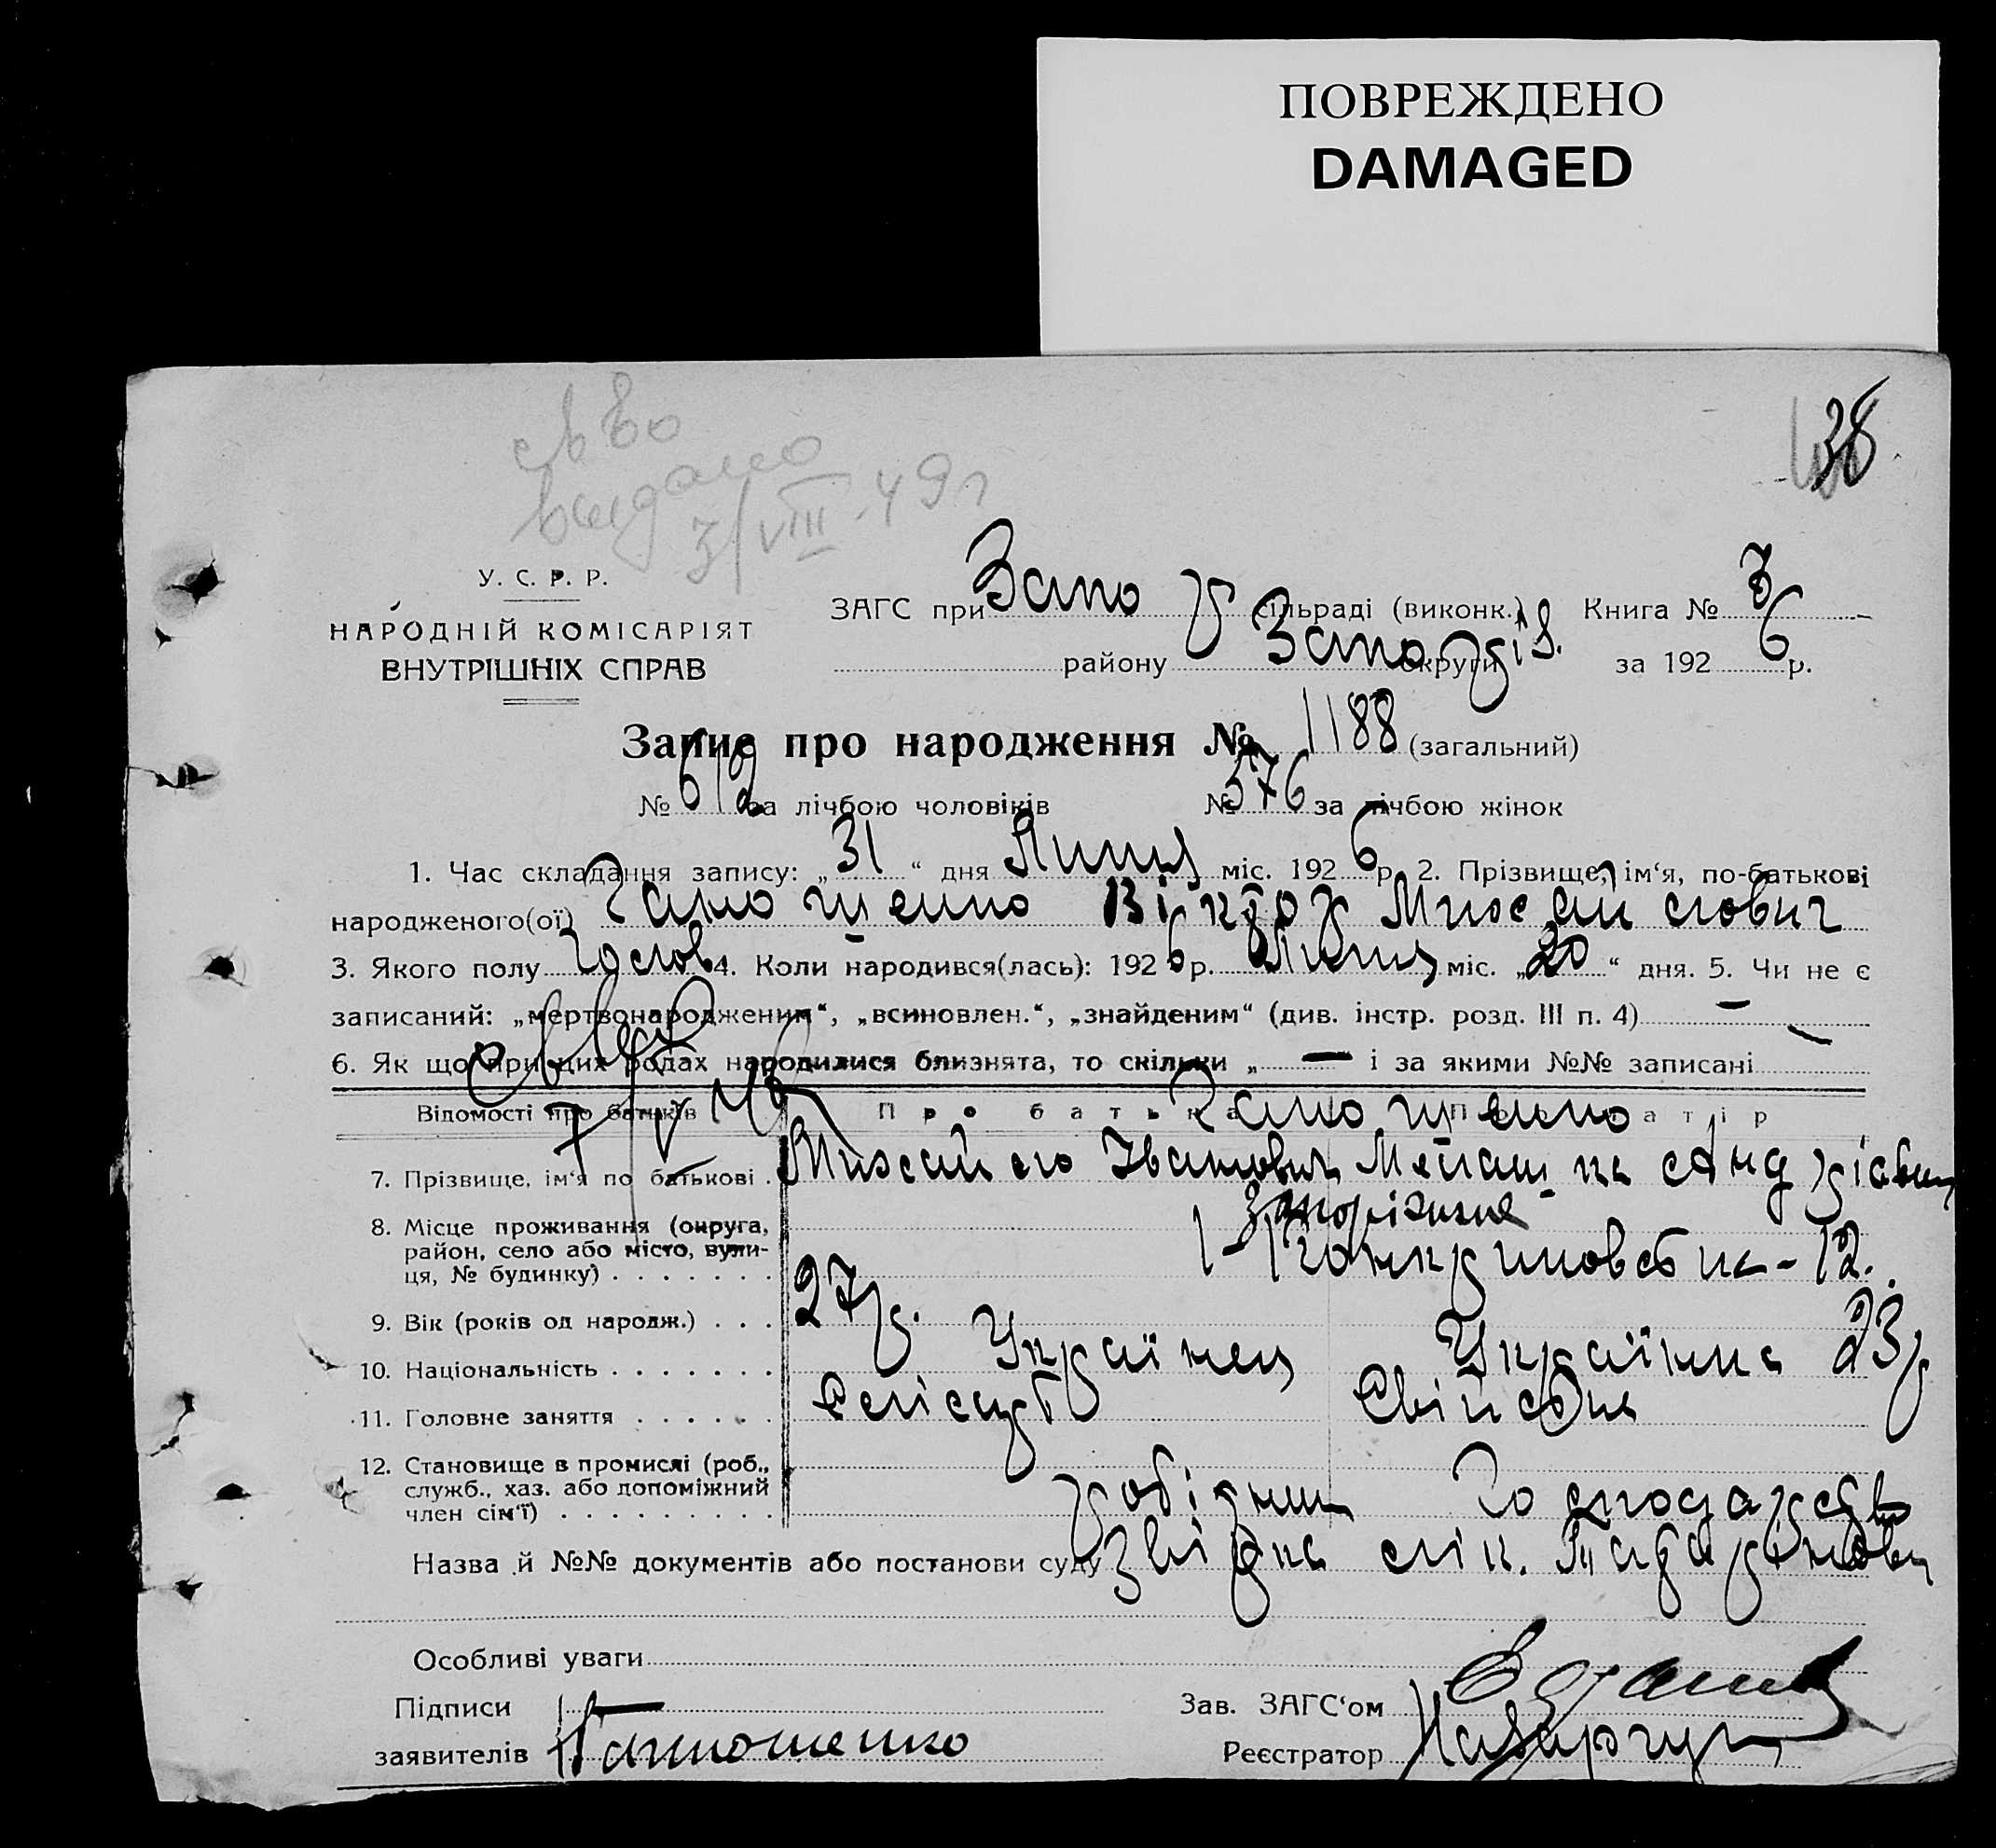 ПОВРЕЖДЕНО
DAMAGED
38
св-во
выдано
3/VIII-49г
У. С. Р. Р.
НАРОДНІЙ КОМІСАРІЯТ
ВНУТРІШНІХ СПРАВ
ЗАГС при Запо р сільраді (виконк.) Книга № 3
району Запоріз. округи за 1926 р.
Запис про народження № 1188 (загальний)
№ 612 за лічбою чоловіків № 576 за лічбою жінок
1. Час складання запису: „31“ дня Липця міс. 1926 р. 2. Прізвище, ім‘я, по-батькові
народженого(ої) Гапошенко Віктор Михайлович
3. Якого полу Чолов 4. Коли народився(лась): 1926 р. Липця міс. „20“ дня. 5. Чи не є
записаний: „мертвонародженим“, „всиновлен.“, „знайденим“ (див. інстр. розд. III п. 4) —
6. Як що при цих родах народилися близнята, то скільки „ — “ і за якими №№ записані —
Відомості про батьків Про батька Про матір
Гапошенко
7. Прізвище, ім‘я по батькові . Михайло Іванович
8. Місце проживання (округа, район, село або місто, вули-
ця, № будинку) . . . . . . . Запоріжжя
12.
9. Вік (років од народж.) . . . 27 р. 23 р
10. Національність . . . . . . . Українец Українка
11. Головне заняття . . . . . . Слісарь
12. Становище в промислі (роб.,
служб., хаз. або допоміжний
член сім‘ї) . . . . . . . . . робідник Господарств
Назва й №№ документів або постанови суду звідка лік.
Особливі уваги
Підписи Зав. ЗАГС‘ом
заявителів Гапошенко Реєстратор